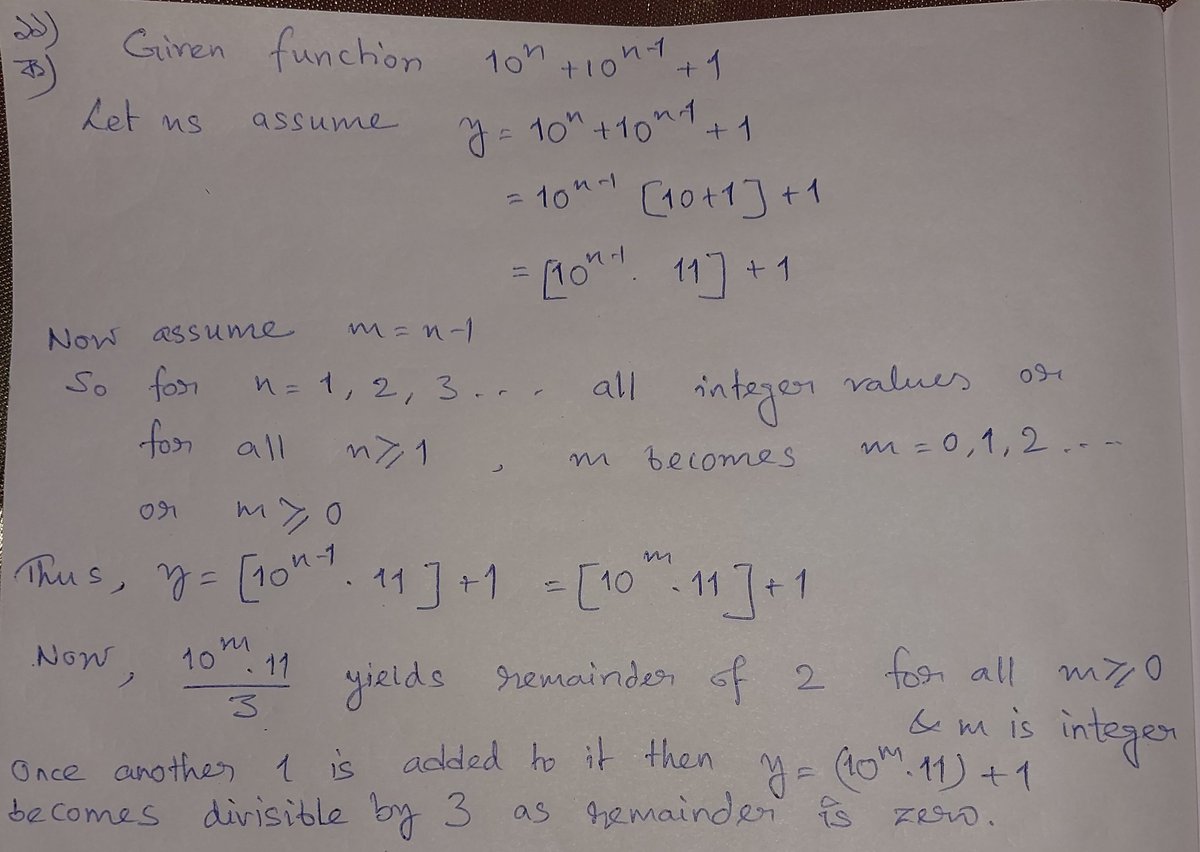 Given function 10ⁿ + 10ⁿ⁻¹ + 1
Let us assume y = 10ⁿ + 10ⁿ⁻¹ + 1
= 10ⁿ⁻¹ [10+1] + 1
= [10ⁿ⁻¹. 11] + 1
Now assume m = n-1
So for n = 1, 2, 3 ... all integer values or
for all n ≥ 1 , m becomes m = 0, 1, 2 ...
or m ≥ 0
Thus, y = [10ⁿ⁻¹. 11] + 1 = [10ᵐ. 11] + 1
Now, 10ᵐ. 11 / 3 yields remainder of 2 for all m ≥ 0
& m is integer
Once another 1 is added to it then y = (10ᵐ. 11) + 1
becomes divisible by 3 as remainder is zero.